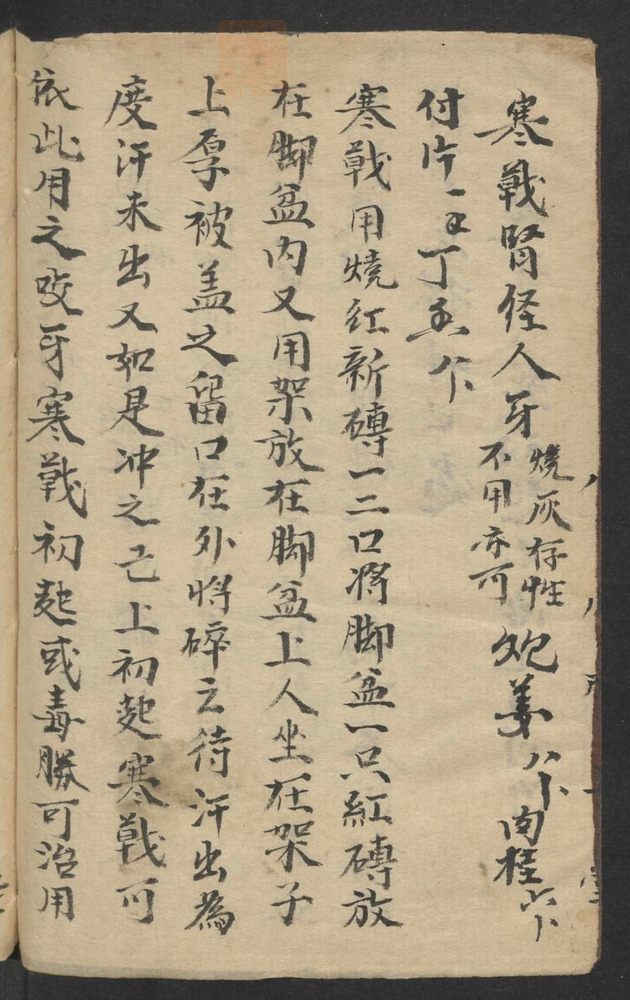 寒戰腎经人牙燒灰存性不用亦可炮姜八卜肉桂六卜
付片一丁五卜
寒戰用燒红新磚一二口将脚盆一只紅磚放
在脚盆内又用架放在脚盆上人坐在架子
上厚被盖之留口在外将碎云待汗出為
度汗未出又如是冲之已上初起寒戰可
依此用之咬牙寒戰初起或毒勝可治用